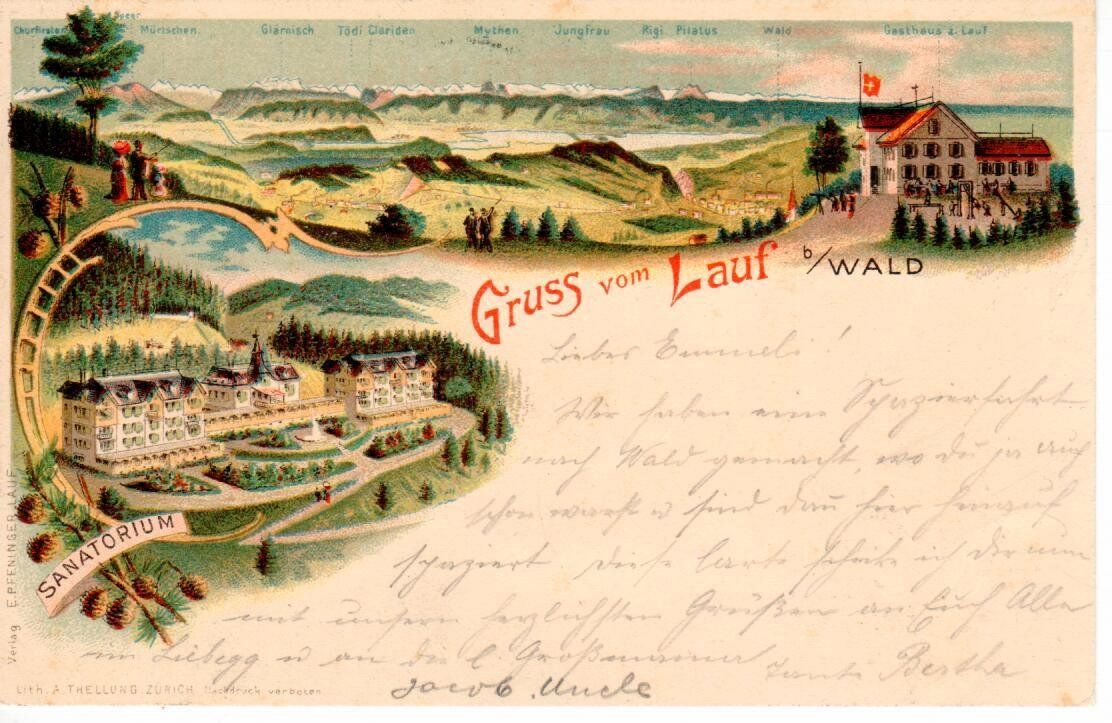 Speer
Churfirsten Mürtschen Glärnisch Tödi Clariden Mythen Jungfrau Rigi Pilatus Wald Gasthaus z. Lauf
Gruss vom Lauf b/WALD
Liebes Emmeli!
Wir haben eine Spazierfahrt
nach Wald gemacht, wo du ja auch
schon warst u sind dan hier hinauf
spaziert diese Carte schicke ich Dir nun
mit unsern herzlichsten Grüßen an Euch Alle
im Liebegg u an die l. Großmama Tante Bertha
Jacob, Uncle
SANATORIUM
Verlag E. PFENINGER, LAUF
Lith. A. THELLUNG ZÜRICH. Nachdruck verboten